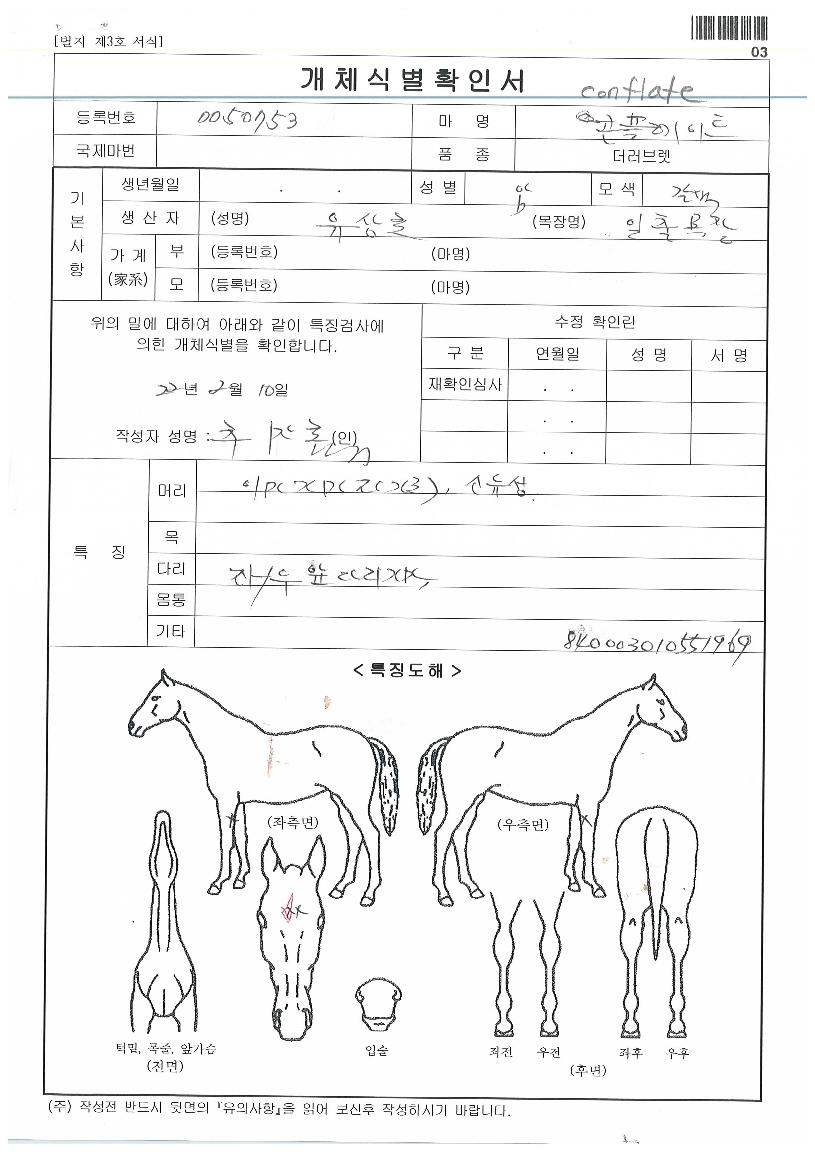 [별지 제3호 서식]
03
개체식별확인서
conflate
등록번호 0050753 마 명 콘플레이트
국제마번 품 종 더러브렛
기본사항
생년월일 . . 성 별 암 모 색 갈색
생 산 자 (성명) 유상훈 (목장명) 일출목장
가 계 (家系) 부 (등록번호) (마명)
모 (등록번호) (마명)
위의 말에 대하여 아래와 같이 특징검사에
의한 개체식별을 확인합니다.
22년 2월 10일
작성자 성명 : (인)
수정 확인란
구 분 연월일 성 명 서 명
재확인심사 . .
. .
. .
특 징
머리
목
다리 좌/우 앞다리
몸통
기타
840003010551969
< 특징도해 >
(좌측면) (우측면)
턱밑, 목줄, 앞가슴
(전면)
입술
좌전 우전 좌후 우후
(후면)
(주) 작성전 반드시 뒷면의 『유의사항』을 읽어 보신후 작성하시기 바랍니다.